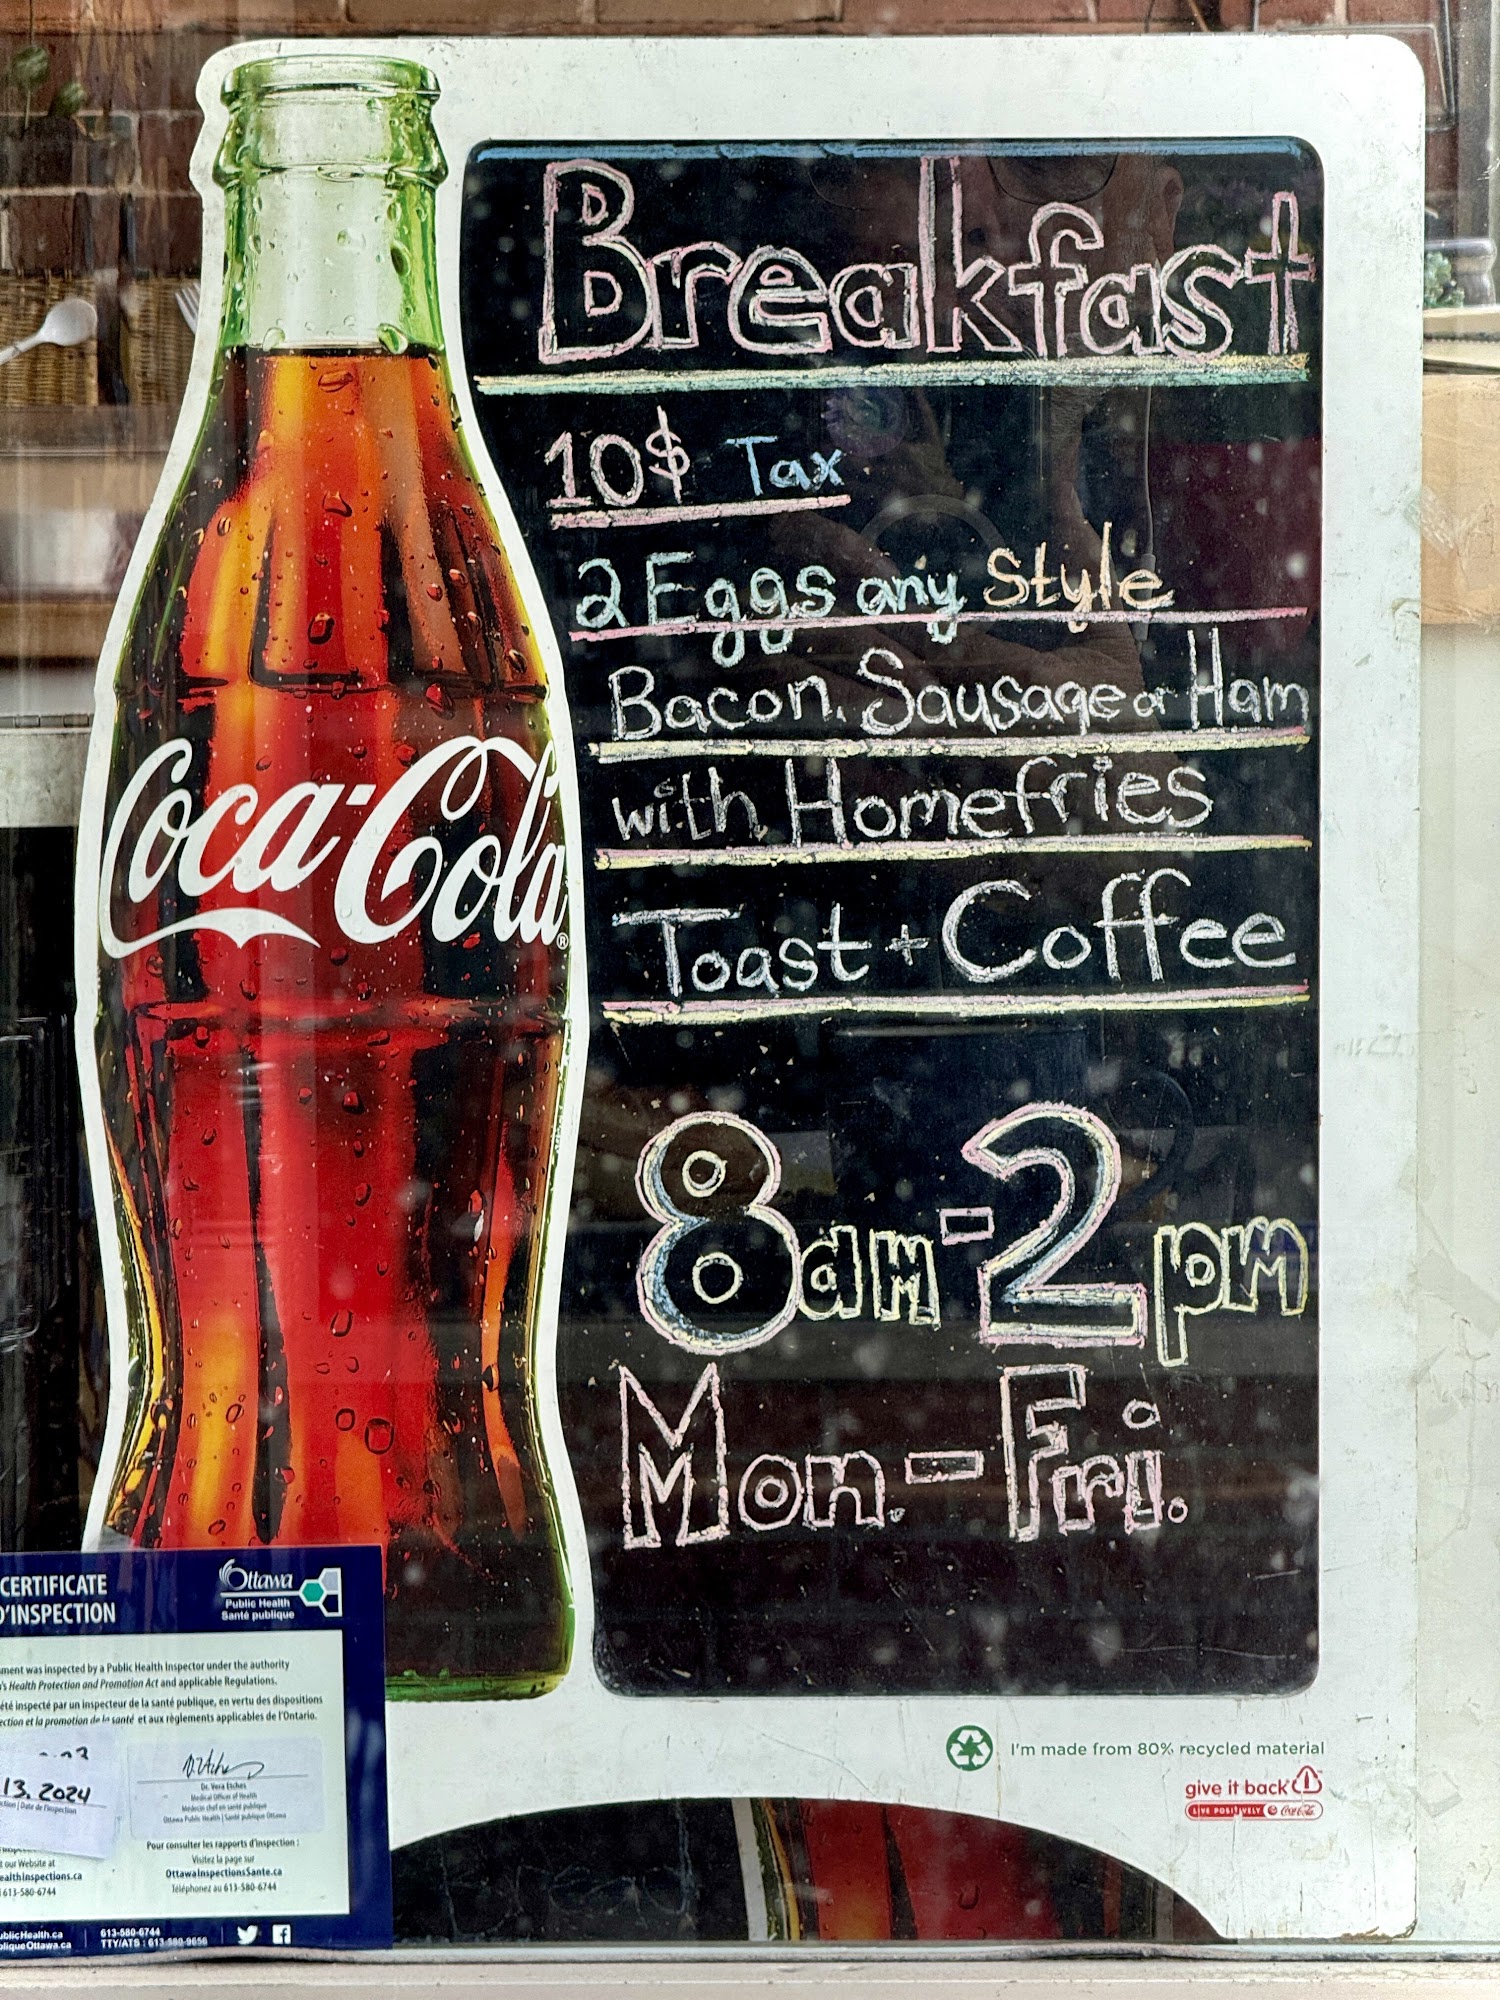 Breakfast
10$ Tax
2 Eggs any Style
Bacon, Sausage or Ham
with Homefries
Toast + Coffee
8am-2pm
Mon.-Fri.
Coca-Cola®
CERTIFICATE
D'INSPECTION
Ottawa
Public Health
Santé publique
ment was inspected by a Public Health Inspector under the authority
's Health Protection and Promotion Act and applicable Regulations.
été inspecté par un inspecteur de la santé publique, en vertu des dispositions
ection et la promotion de la santé et aux règlements applicables de l'Ontario.
13. 2024
Date de l'inspection
Dr. Vera Etches
Medical Officer of Health
Médecin chef en santé publique
Ottawa Public Health | Santé publique Ottawa
Pour consulter les rapports d'inspection :
Visitez la page sur
OttawaInspectionsSante.ca
Téléphonez au 613-580-6744
our Website at
ealthinspections.ca
613-580-6744
ublicHealth.ca
bliqueOttawa.ca
613-580-6744
TTY/ATS : 613-580-9656
I'm made from 80% recycled material
give it back
LIVE POSITIVELY Coca-Cola